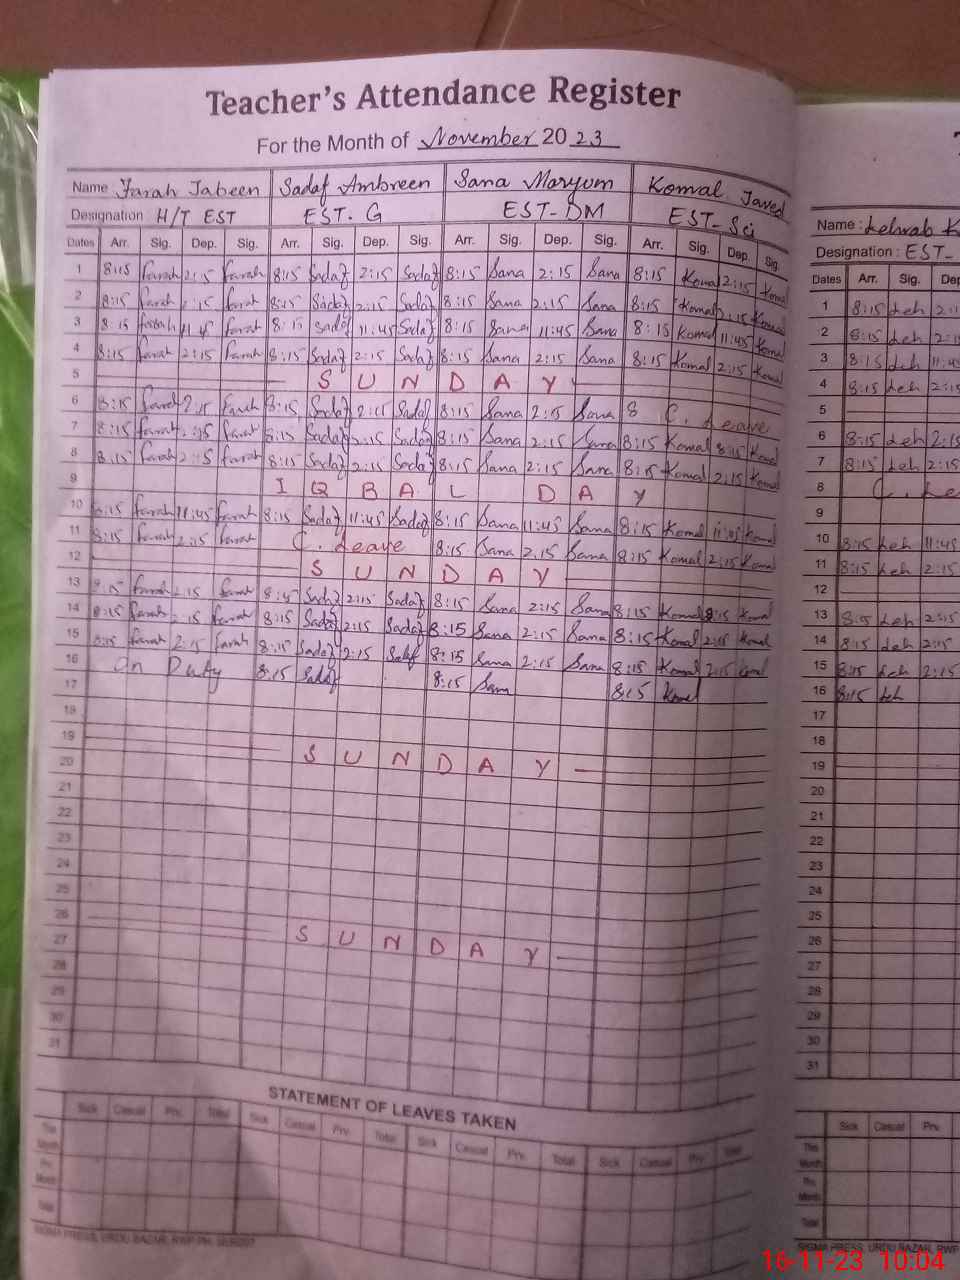 Teacher's Attendance Register
For the Month of November 20 23
Name Farah Jabeen Sadaf Ambreen Sana Maryum Komal Javed
Designation H/T EST EST. G EST-DM EST-Sci
Dates Arr. Sig. Dep. Sig. Arr. Sig. Dep. Sig. Arr. Sig. Dep. Sig. Arr. Sig. Dep. Sig.
1 8:15 Farah 2:15 Farah 8:15 Sadaf 2:15 Sadaf 8:15 Sana 2:15 Sana 8:15 Komal 2:15 Komal
2 8:15 Farah 2:15 Farah 8:15 Sadaf 2:15 Sadaf 8:15 Sana 2:15 Sana 8:15 Komal 2:15 Komal
3 8:15 Farah 11:45 Farah 8:15 Sadaf 11:45 Sadaf 8:15 Sana 11:45 Sana 8:15 Komal 11:45 Komal
4 8:15 Farah 2:15 Farah 8:15 Sadaf 2:15 Sadaf 8:15 Sana 2:15 Sana 8:15 Komal 2:15 Komal
5 SUNDAY
6 8:15 Farah 2:15 Farah 8:15 Sadaf 2:15 Sadaf 8:15 Sana 2:15 Sana 8 C. Leave
7 8:15 Farah 2:15 Farah 8:15 Sadaf 2:15 Sadaf 8:15 Sana 2:15 Sana 8:15 Komal 8:15 Komal
8 8:15 Farah 2:15 Farah 8:15 Sadaf 2:15 Sadaf 8:15 Sana 2:15 Sana 8:15 Komal 2:15 Komal
9 IQBAL DAY
10 8:15 Farah 11:45 Farah 8:15 Sadaf 11:45 Sadaf 8:15 Sana 11:45 Sana 8:15 Komal 11:45 Komal
11 8:15 Farah 2:15 Farah C. Leave 8:15 Sana 2:15 Sana 8:15 Komal 2:15 Komal
12 SUNDAY
13 8:15 Farah 2:15 Farah 8:15 Sadaf 2:15 Sadaf 8:15 Sana 2:15 Sana 8:15 Komal 2:15 Komal
14 8:15 Farah 2:15 Farah 8:15 Sadaf 2:15 Sadaf 8:15 Sana 2:15 Sana 8:15 Komal 2:15 Komal
15 8:15 Farah 2:15 Farah 8:15 Sadaf 2:15 Sadaf 8:15 Sana 2:15 Sana 8:15 Komal 2:15 Komal
16 On Duty 8:15 Sadaf 8:15 Sana 8:15 Komal
17
18
19 SUNDAY
20
21
22
23
24
25
26 SUNDAY
27
28
29
30
31
STATEMENT OF LEAVES TAKEN
Sick Casual Prv. Total Sick Casual Prv. Total Sick Casual Prv. Total Sick Casual Prv. Total
This Month
Prv. Month
Total
SIGMA PRESS, URDU BAZAR, RWP PH:
Name: Lehrab
Designation: EST-
Dates Arr. Sig. Dep
1 8:15 Leh 2:1
2 8:15 Leh 2:1
3 8:15 Leh 11:4
4 8:15 Leh 2:15
5
6 8:15 Leh 2:15
7 8:15 Leh 2:15
8 C. Le
9
10 8:15 Leh 11:45
11 8:15 Leh 2:15
12
13 8:15 Leh 2:15
14 8:15 Leh 2:15
15 8:15 Leh 2:15
16 8:15 Leh
17
18
19
20
21
22
23
24
25
26
27
28
29
30
31
Sick Casual Prv.
This Month
Prv. Month
Total
SIGMA PRESS, URDU BAZAR, RWP
16-11-23 10:04